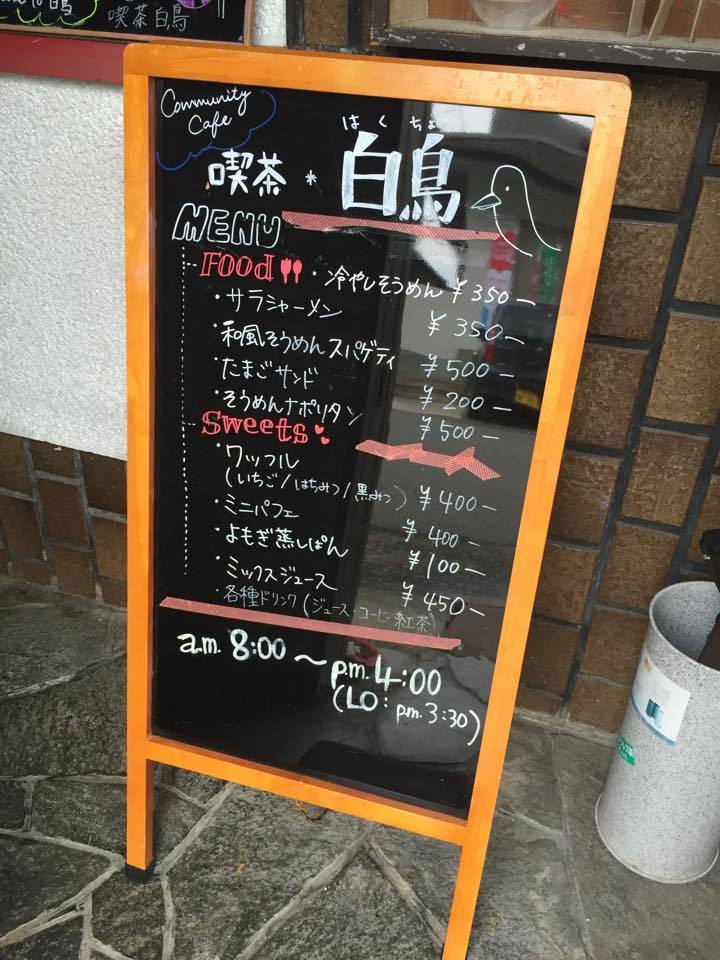 喫茶白鳥
Community
Cafe
はくちょ
喫茶*白鳥
MENU
Food
・冷やしそうめん ¥350-
・サラシャーメン ¥350-
・和風そうめんスパゲティ ¥500-
・たまごサンド ¥200-
・そうめんナポリタン ¥500-
Sweets
・ワッフル
(いちご/はちみつ/黒みつ) ¥400-
・ミニパフェ ¥400-
・よもぎ蒸しぱん ¥100-
・ミックスジュース ¥450-
・各種ドリンク(ジュース・コーヒー紅茶)
a.m. 8:00~p.m.4:00
(LO:p.m.3:30)